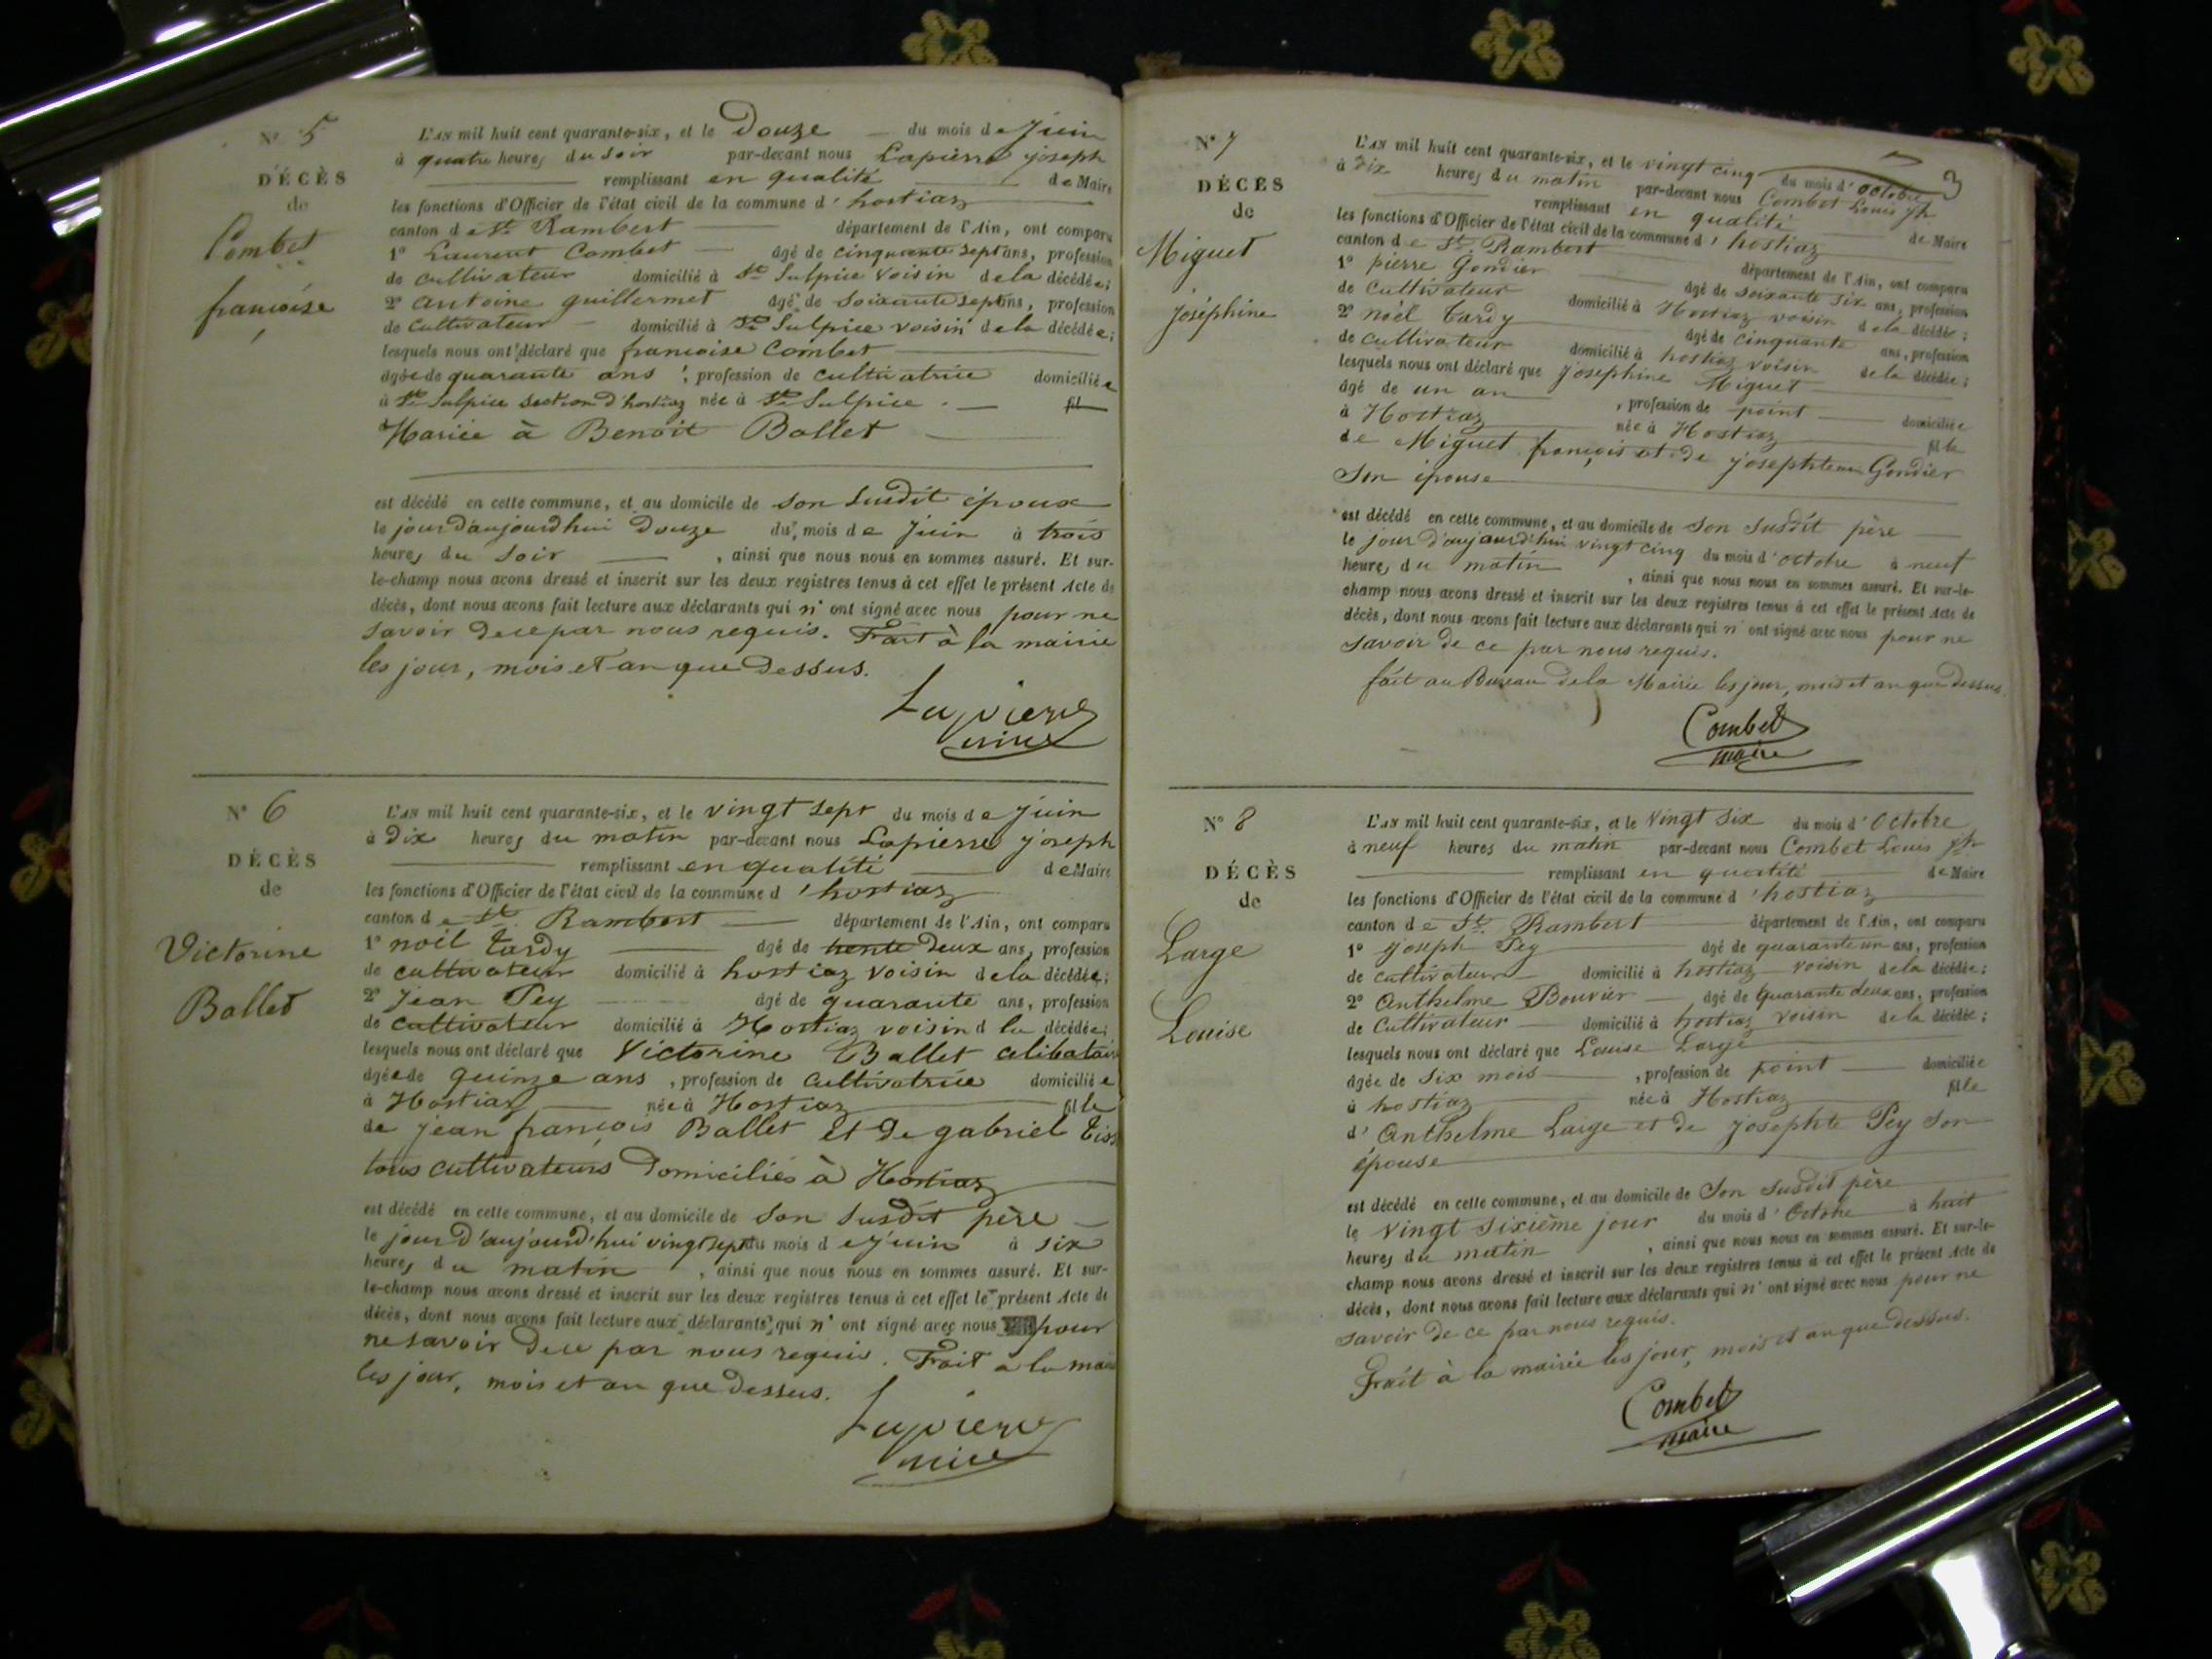 N° 5
DÉCÈS
de
Combet
françoise
L'AN mil huit cent quarante-six, et le Douze du mois de Juin
à quatre heures du soir par-devant nous Lapierre joseph
remplissant en qualité de Maire
les fonctions d'Officier de l'état civil de la commune d'hostiaz
canton de St. Rambert département de l'Ain, ont comparu
1° Laurent Combet âgé de cinquante sept ans, profession
de cultivateur domicilié à St Sulpice voisin de la décédée;
2° antoine guillermet âgé de soixante sept ans, profession
de cultivateur domicilié à St Sulpice voisin de la décédée;
lesquels nous ont déclaré que françoise Combet
âgée de quarante ans, profession de cultivatrice domiciliée
à St Sulpice section d'hostiaz née à St Sulpice. fil
Mariée à Benoit Ballet
est décédé en cette commune, et au domicile de son susdit époux
le jour d'aujourd'hui Douze du mois de Juin à trois
heures du soir, ainsi que nous nous en sommes assuré. Et sur-
le-champ nous avons dressé et inscrit sur les deux registres tenus à cet effet le présent Acte de
décès, dont nous avons fait lecture aux déclarants qui n'ont signé avec nous pour ne
savoir de ce par nous requis. Fait à la mairie
les jour, mois et an que dessus.
Lapierre
maire
N° 6
DÉCÈS
de
Victorine
Ballet
L'AN mil huit cent quarante-six, et le vingt sept du mois de Juin
à Dix heures du matin par-devant nous Lapierre joseph
remplissant en qualité de Maire
les fonctions d'Officier de l'état civil de la commune d'hostiaz
canton de St. Rambert département de l'Ain, ont comparu
1° noël tardy âgé de trente Deux ans, profession
de cultivateur domicilié à hostiaz voisin de la décédée;
2° Jean Pey âgé de quarante ans, profession
de cultivateur domicilié à Hostiaz voisin d la décédée;
lesquels nous ont déclaré que Victorine Ballet celibatair
âgée de quinze ans, profession de cultivatrice domiciliée
à Hostiaz née à Hostiaz fille
de jean françois Ballet et de gabriel tiss
tous cultivateurs Domiciliés à Hostiaz
est décédé en cette commune, et au domicile de son susdit père
le jour d'aujourd'hui vingt sept du mois de juin à six
heures du matin, ainsi que nous nous en sommes assuré. Et sur-
le-champ nous avons dressé et inscrit sur les deux registres tenus à cet effet le présent Acte de
décès, dont nous avons fait lecture aux déclarants qui n'ont signé avec nous pour
ne savoir de ce par nous requis. Fait à la mai
les jour, mois et an que dessus.
Lapierre
maire
3
N° 7
DÉCÈS
de
Miguet
Joséphine
L'AN mil huit cent quarante-six, et le vingt cinq du mois d'octobre
à dix heures du matin par-devant nous Combet Louis jh
remplissant en qualité de Maire
les fonctions d'Officier de l'état civil de la commune d'hostiaz
canton de St. Rambert département de l'Ain, ont comparu
1° pierre Gondier âgé de soixante six ans, profession
de Cultivateur domicilié à Hostiaz voisin de la décédée;
2° noël tardy âgé de cinquante ans, profession
de cultivateur domicilié à hostiaz voisin de la décédée;
lesquels nous ont déclaré que josephine Miguet
âgé de un an, profession de point domiciliée
à Hostiaz née à Hostiaz fille
de Miguet françois et de Gondier
son épouse
est décédé en cette commune, et au domicile de son susdit père
le jour d'aujourd'hui vingt cinq du mois d'octobre à neuf
heures du matin, ainsi que nous nous en sommes assuré. Et sur-le-
champ nous avons dressé et inscrit sur les deux registres tenus à cet effet le présent Acte de
décès, dont nous avons fait lecture aux déclarants qui n'ont signé avec nous pour ne
savoir de ce par nous requis.
fait au Bureau de la Mairie les jour, mois et an que dessus.
Combet
maire
N° 8
DÉCÈS
de
Large
Louise
L'AN mil huit cent quarante-six, et le Vingt Six du mois d'Octobre
à neuf heures du matin par-devant nous Combet Louis jh
remplissant en qualité de Maire
les fonctions d'Officier de l'état civil de la commune d'hostiaz
canton de St. Rambert département de l'Ain, ont comparu
1° joseph Pey âgé de quarante un ans, profession
de cultivateur domicilié à hostiaz voisin de la décédée;
2° Anthelme Bouvier âgé de Quarante deux ans, profession
de Cultivateur domicilié à hostiaz voisin de la décédée;
lesquels nous ont déclaré que Louise Large
âgée de Six mois, profession de point domiciliée
à hostiaz née à Hostiaz fille
d'Anthelme Large et de josephte Pey son
épouse
est décédé en cette commune, et au domicile de Son susdit père
le Vingt Sixième jour du mois d'Octobre à huit
heures du matin, ainsi que nous nous en sommes assuré. Et sur-le-
champ nous avons dressé et inscrit sur les deux registres tenus à cet effet le présent Acte de
décès, dont nous avons fait lecture aux déclarants qui n'ont signé avec nous pour ne
savoir de ce par nous requis.
Frait à la mairie les jour, mois et an que dessus.
Combet
maire